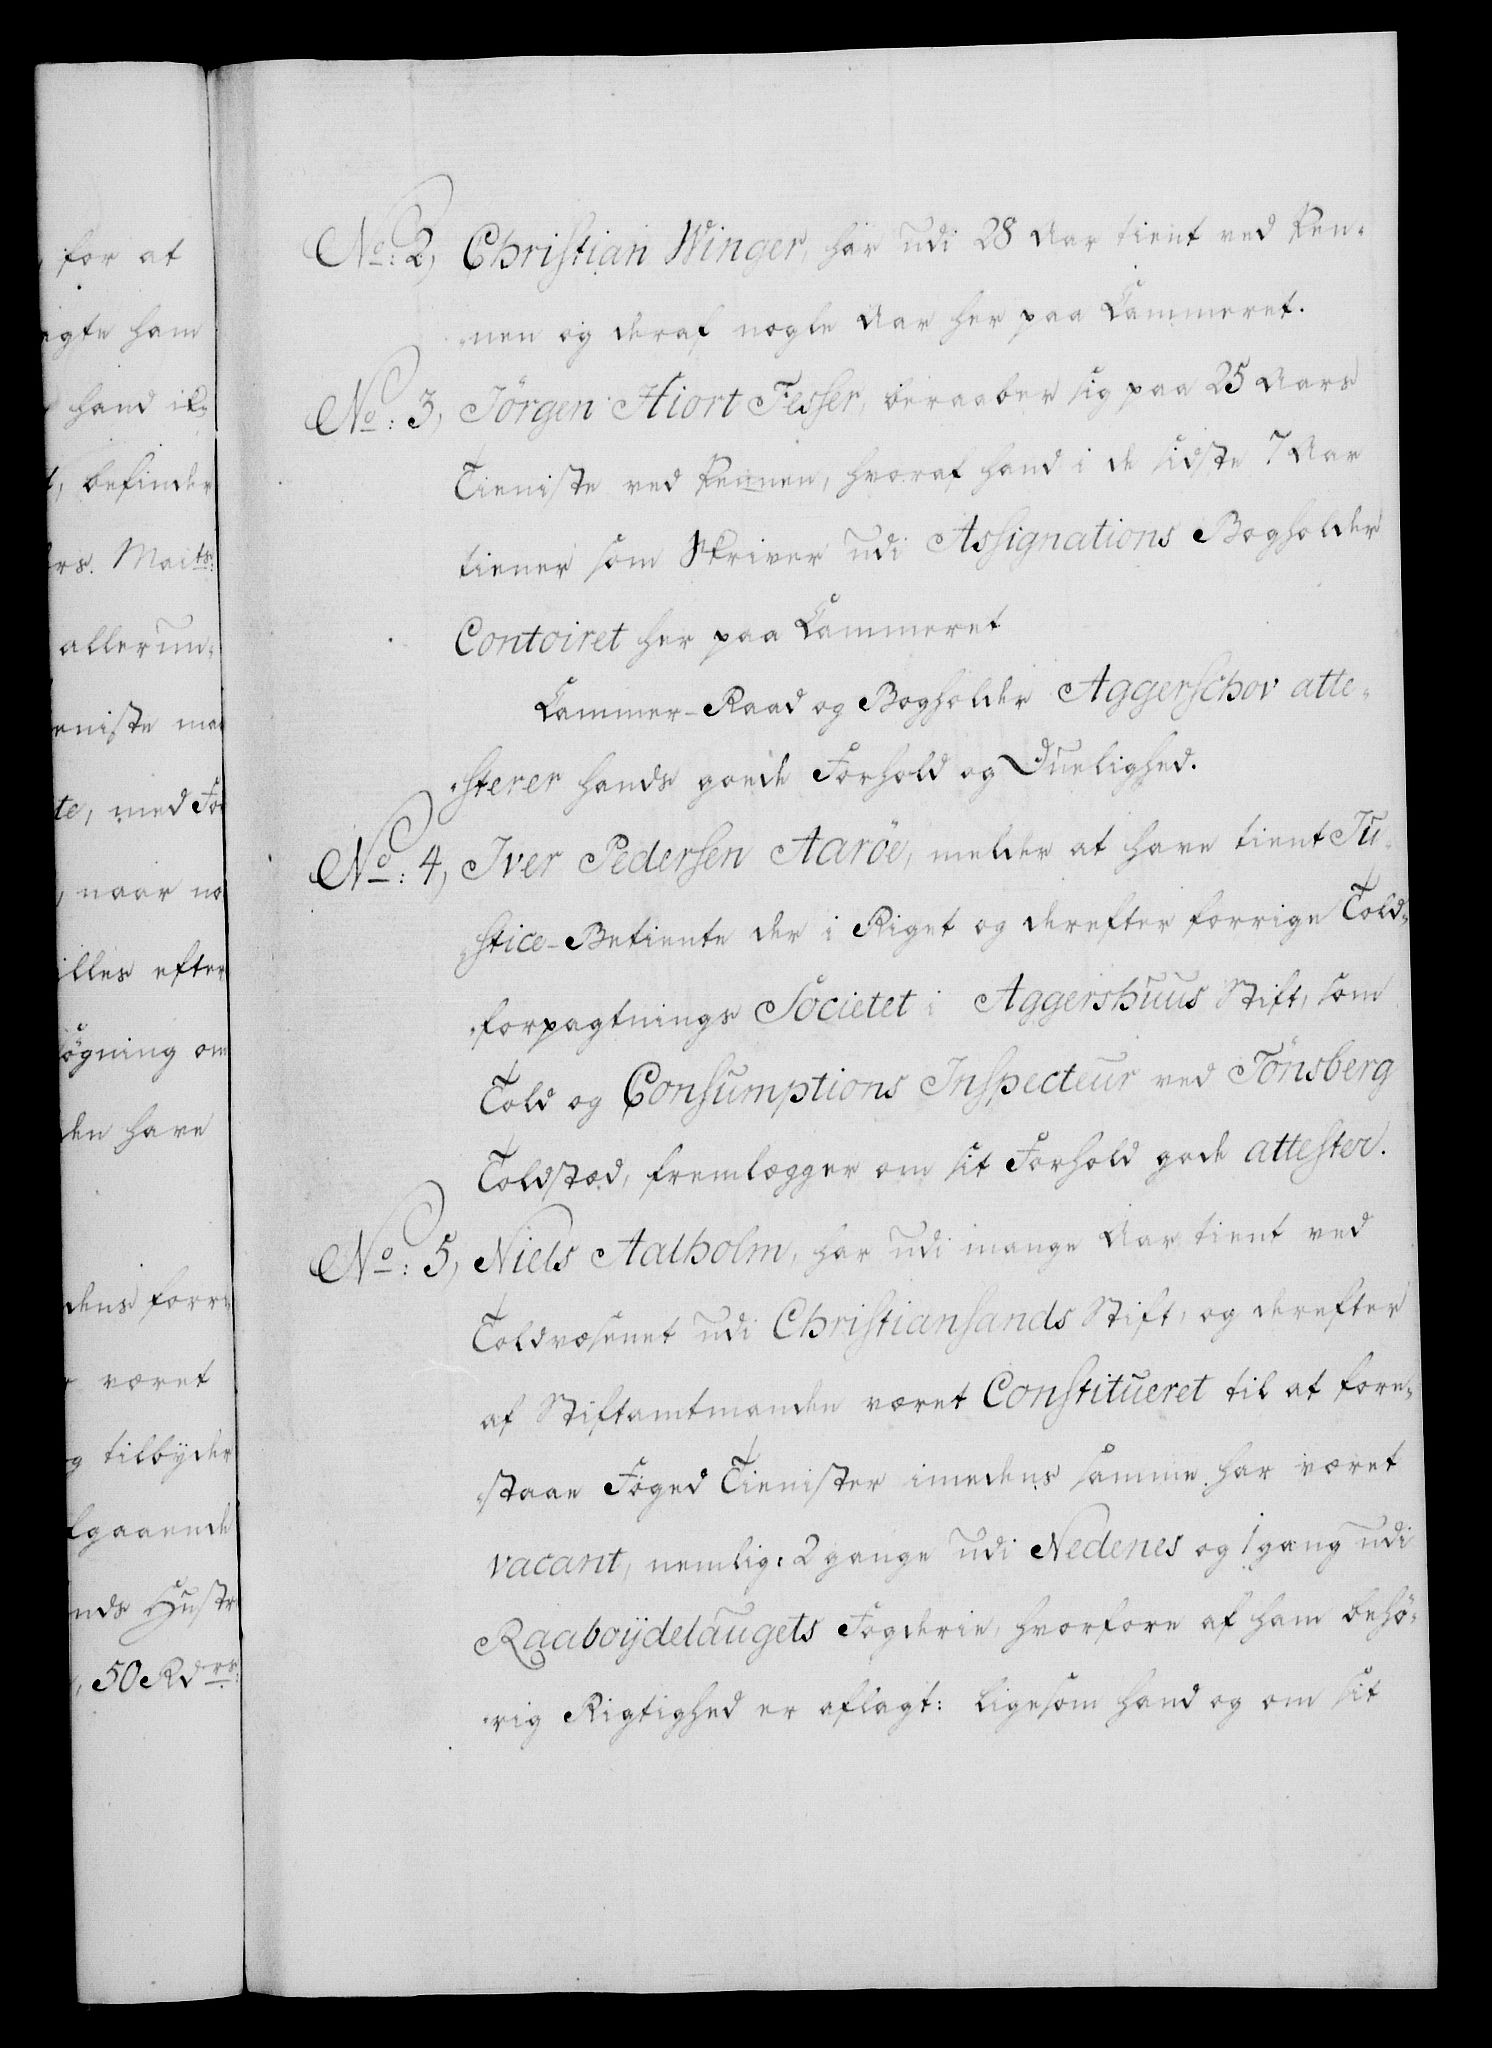 for at
igte ham
hand ik-
t, befinder
ers. Maits:
allerun-
eniste ma
te, med Fo
naar no
illes efter
søgning om
den have
dens forr
været
g tilbyder
fgaaende
nds Hustr
, 50 Rdrs:
No: 2, Christian Winger, har udi 28 Aar tient ved Pen-
-nen og deraf nogle Aar her paa Cammeret.
No: 3, Jörgen Hiort Fesser, beraaber sig paa 25 Aars
Tieniste ved Pennen, hvoraf hand i de sidste 7 Aar
tiener som Skriver udi Assignations Bogholder
Contoiret her paa Cammeret
Cammer-Raad og Bogholder Aggerschov atte-
-sterer hands goede Forhold og Duelighed.
No: 4, Iver Pedersen Aaröe, melder at have tient Ju-
-stice-Betiente der i Riget og derefter forrige Told-
-forpagtnings Societet i Aggershuus Stift, som
Told og Consumptions Inspecteur ved Tönsberg
Toldstæd, fremlægger om sit Forhold gode attester.
No: 5, Niels Aalholm, har udi mange Aar tient ved
Toldvæsenet udi Christiansands Stift, og derefter
af Stiftamtmanden været Constitueret til at fore-
-staae Foged Tienister imedens samme har været
vacant, nemlig: 2 gange udi Nedenes og 1 gang udi
Raaboÿdelaugets Fogderie, hvorfore af ham behö-
-rig Rigtighed er aflagt: ligesom hand og om sit